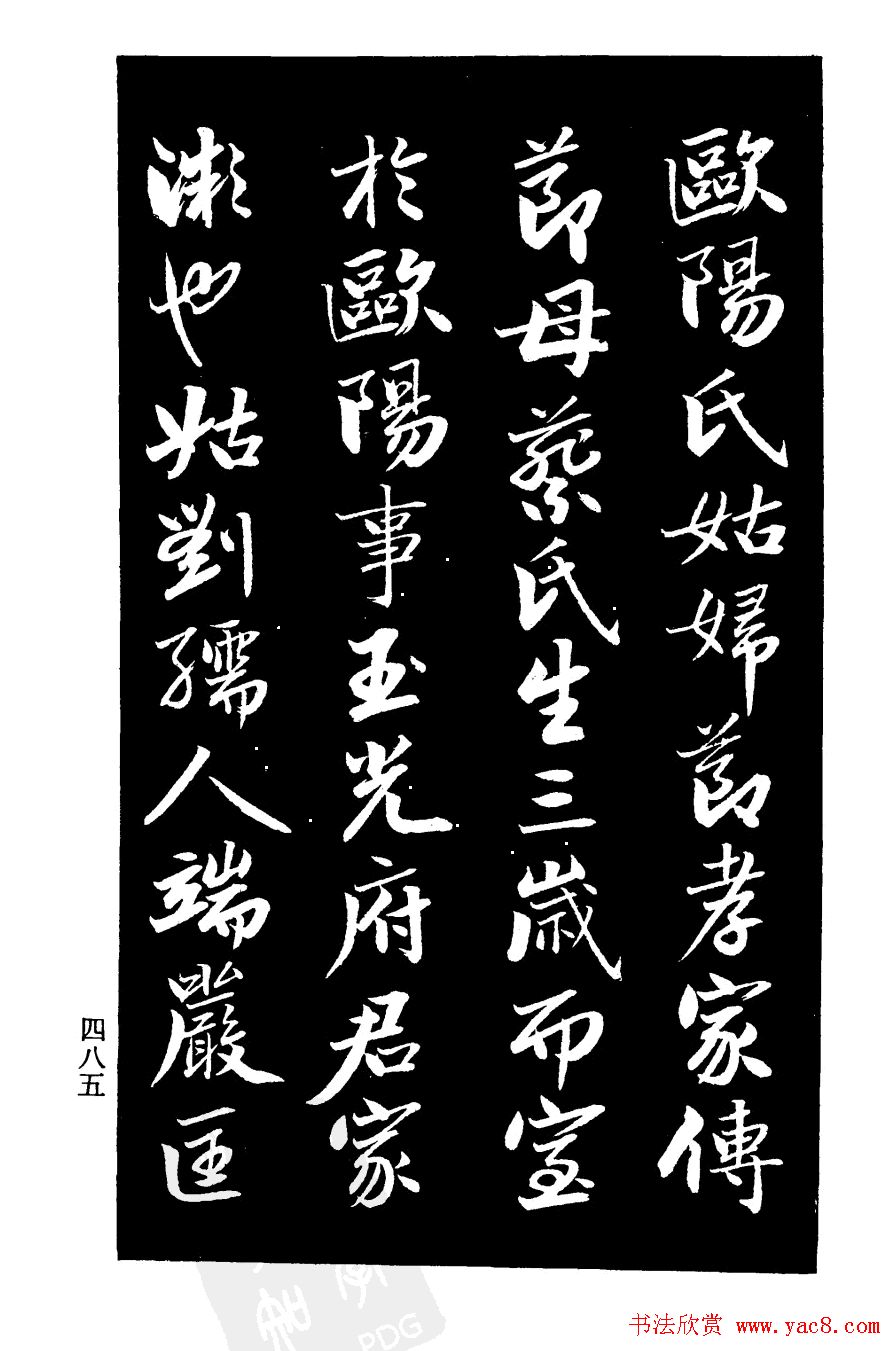 歐陽氏姑婦節孝家傳
節母蔡氏生三歲而室
於歐陽事玉光府君家
漵也姑劉孺人端嚴匡
四八五
PDG
书法欣赏 www.yac8.com